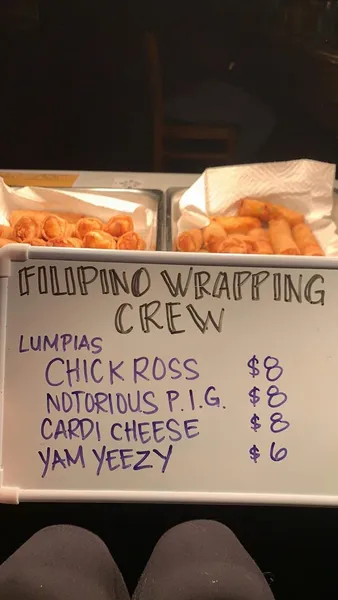 FILIPINO WRAPPING
CREW
LUMPIAS
CHICK ROSS $8
NOTORIOUS P.I.G. $8
CARDI CHEESE $8
YAM YEEZY $6